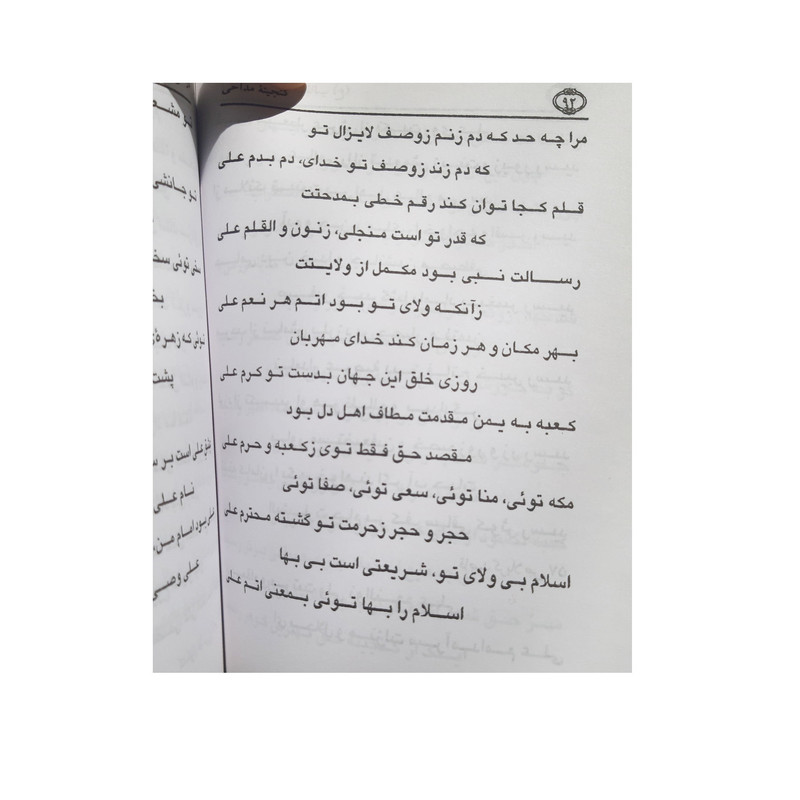 ۹۲
گنجینهٔ مداحی
مرا چه حد که دم زنم زوصف لایزال تو
که دم زند زوصف تو خدای، دم بدم علی
قلم کجا توان کند رقم خطی بمدحتت
که قدر تو است منجلی، زنون و القلم علی
رسالت نبی بود مکمل از ولایتت
زآنکه ولای تو بود اتم هر نعم علی
بهر مکان و هر زمان کند خدای مهربان
روزی خلق این جهان بدست تو کرم علی
کعبه به یمن مقدمت مطاف اهل دل بود
مقصد حق فقط توی زکعبه و حرم علی
مکه توئی، منا توئی، سعی توئی، صفا توئی
حجر و حجر زحرمت تو گشته محترم علی
اسلام بی ولای تو، شریعتی است بی بها
اسلام را بها توئی بمعنی اتم علی
تو جانشی
سخی توئی سخ
توئی که زهره‌ی
پشت
علی است بر س
نام علی
بود امام من،
علی وصی